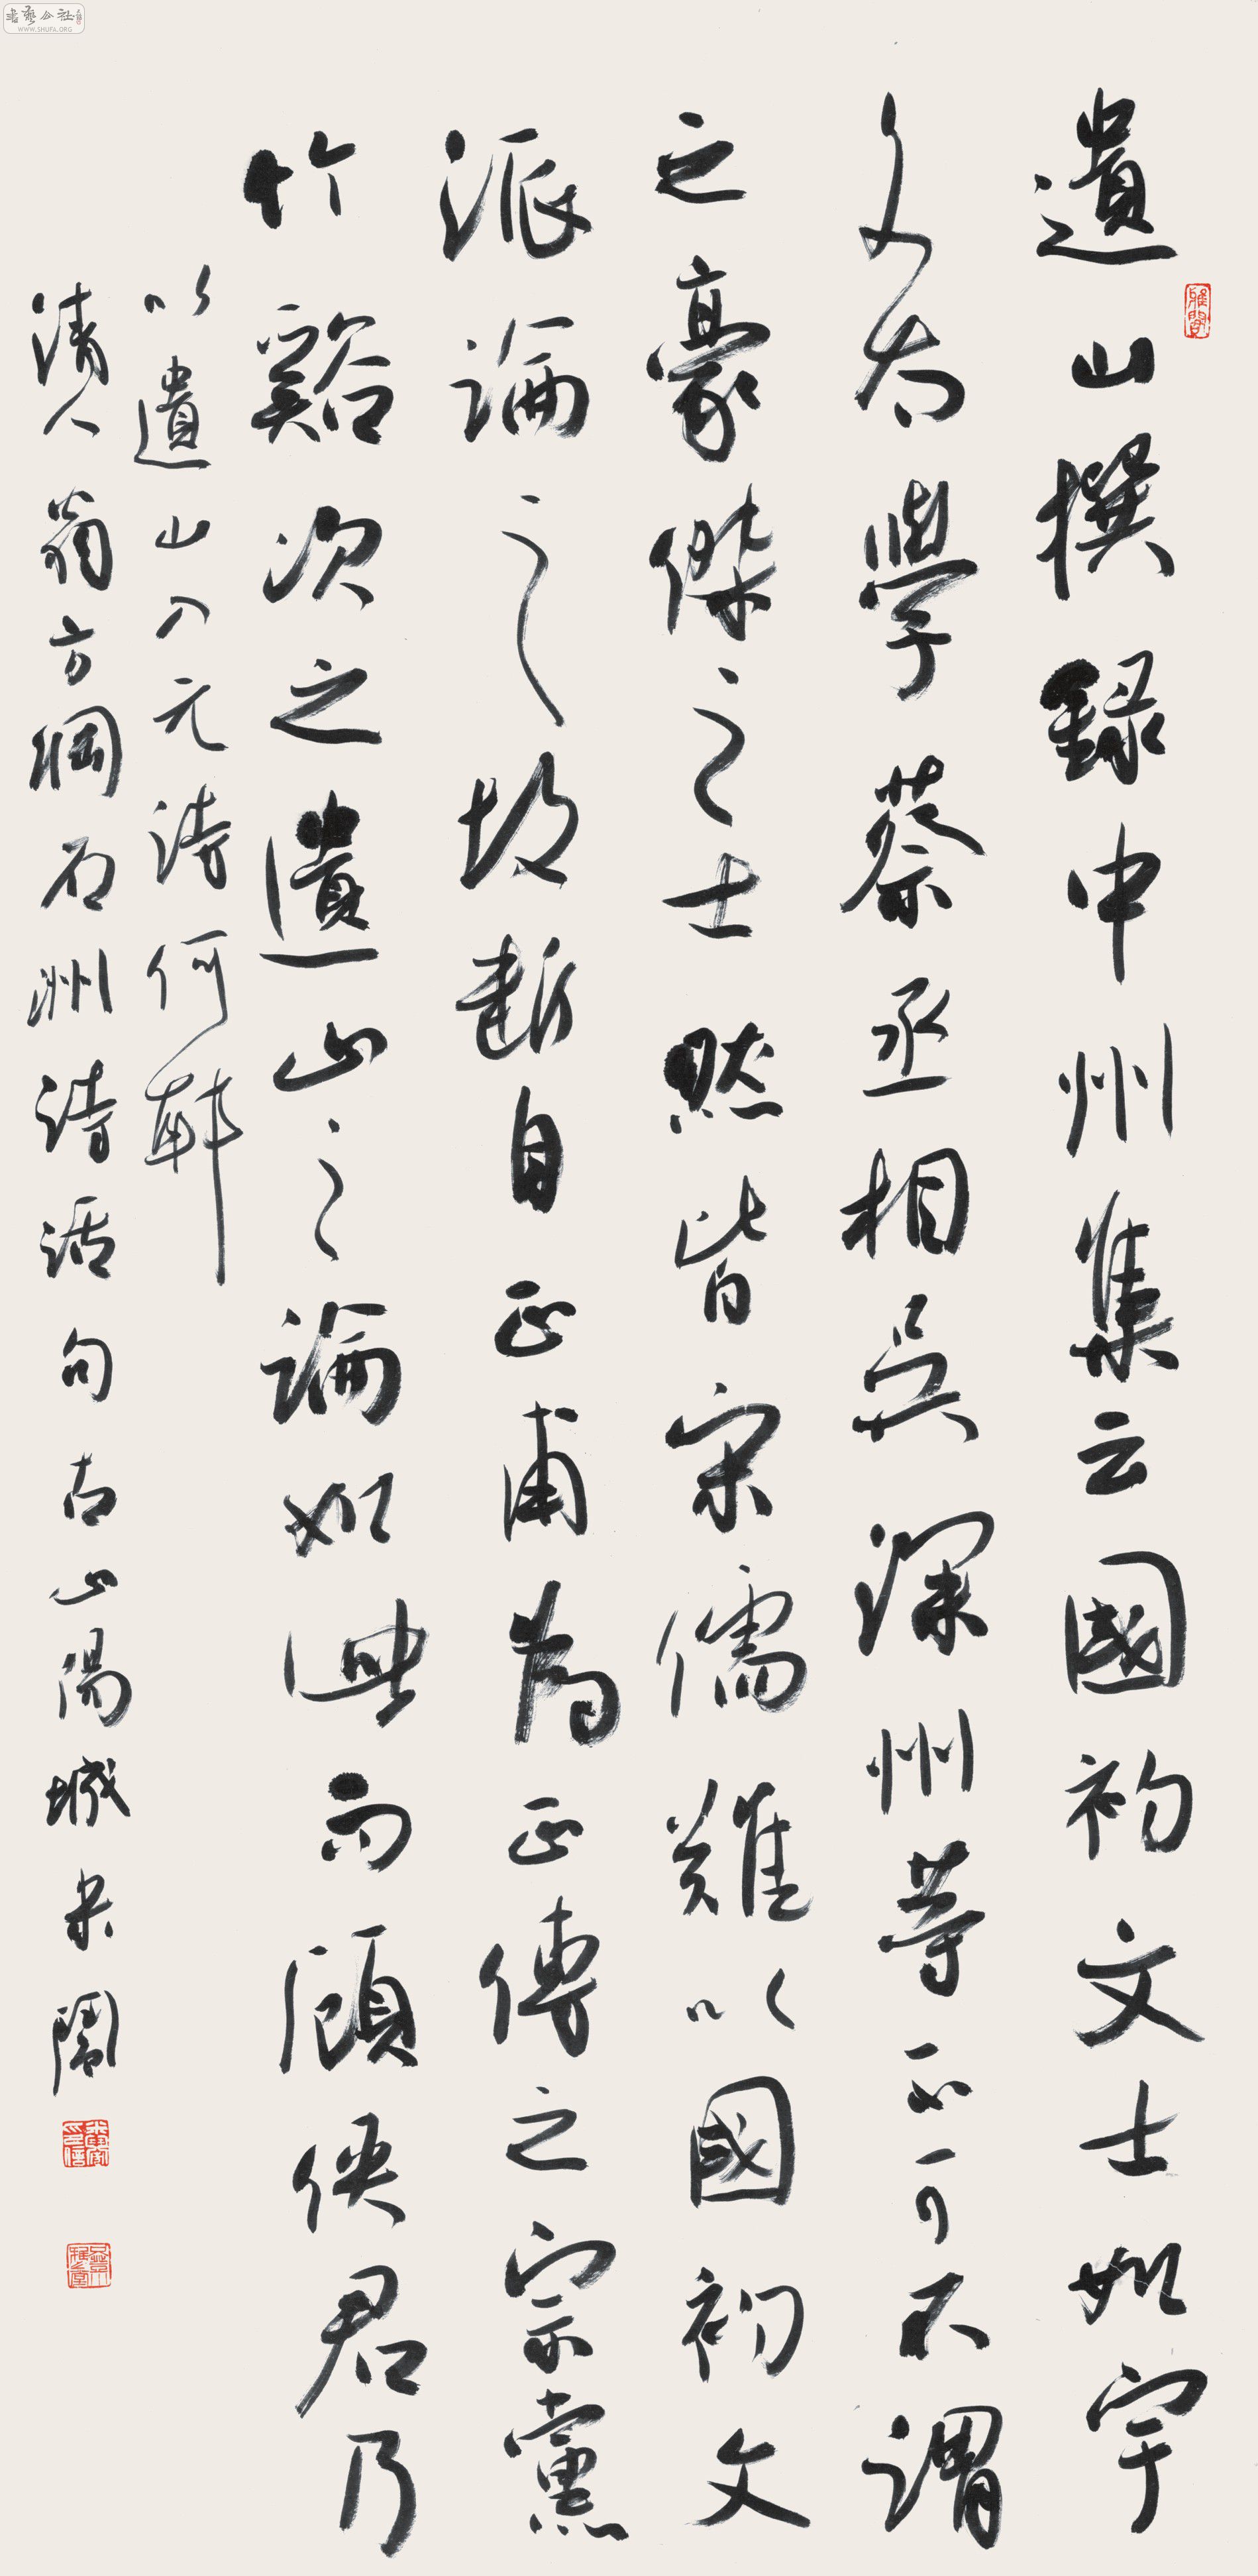 遺山撰錄中州集云國初文士如宇
文太學蔡丞相吳深州等不可不謂
之豪傑之士然皆宋儒難以國初文
派論之故斷自正甫為正傳之宗黨
竹谿次之遺山之論如此而顧俠君乃
以遺山入元詩何耶
清人翁方綱石洲詩話句古山陽城朱闇
WWW.SHUFA.ORG